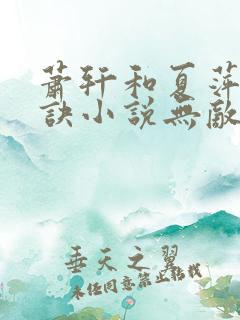 蕭轩和夏萍
訣小説無敵
垂天之翼
未经同意禁止转载